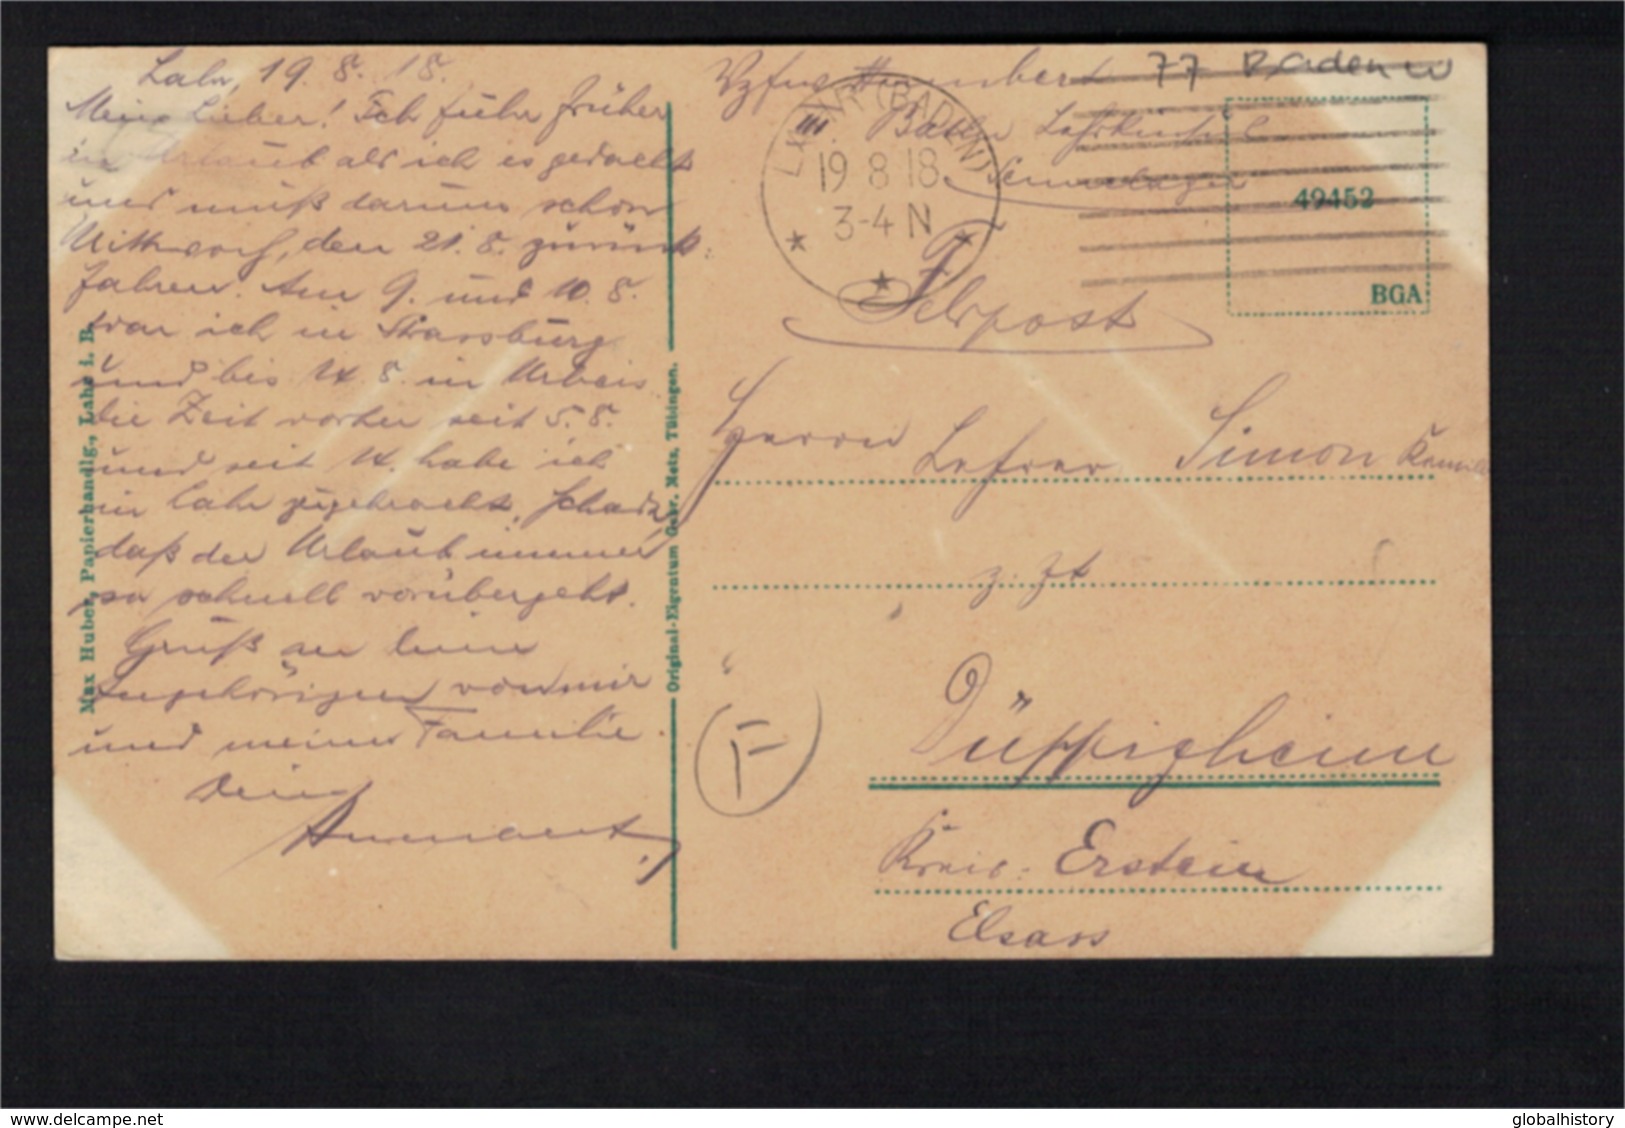 Lahr, 19. 8. 18.
Mein Lieber! Ich fuhr früher
in Urlaub als ich es gedacht
und muß darum schon
Mittwoch, den 21. 8. zurück-
fahren. Am 9. und 10. 8.
war ich in Strassburg
und bis 14. 8. in Urbeis
die Zeit vorher seit 5. 8.
und seit 14. habe ich
in Lahr zugebracht. Schade,
daß der Urlaub immer
so schnell vorübergeht.
Gruß an Deine
Angehörigen von mir
und meiner Familie.
Dein
Max Huber, Papierhandlg., Lahr i. B.
Original-Eigentum Gebr. Metz, Tübingen.
77 Baden W
III.
LAHR (BADEN)
19 8 18
3-4 N
49453
BGA
Feldpost
Herrn Lehrer Simon
z. Zt
Düppigheim
Kreis: Erstein
Elsass
F
www.delcampe.net
globalhistory